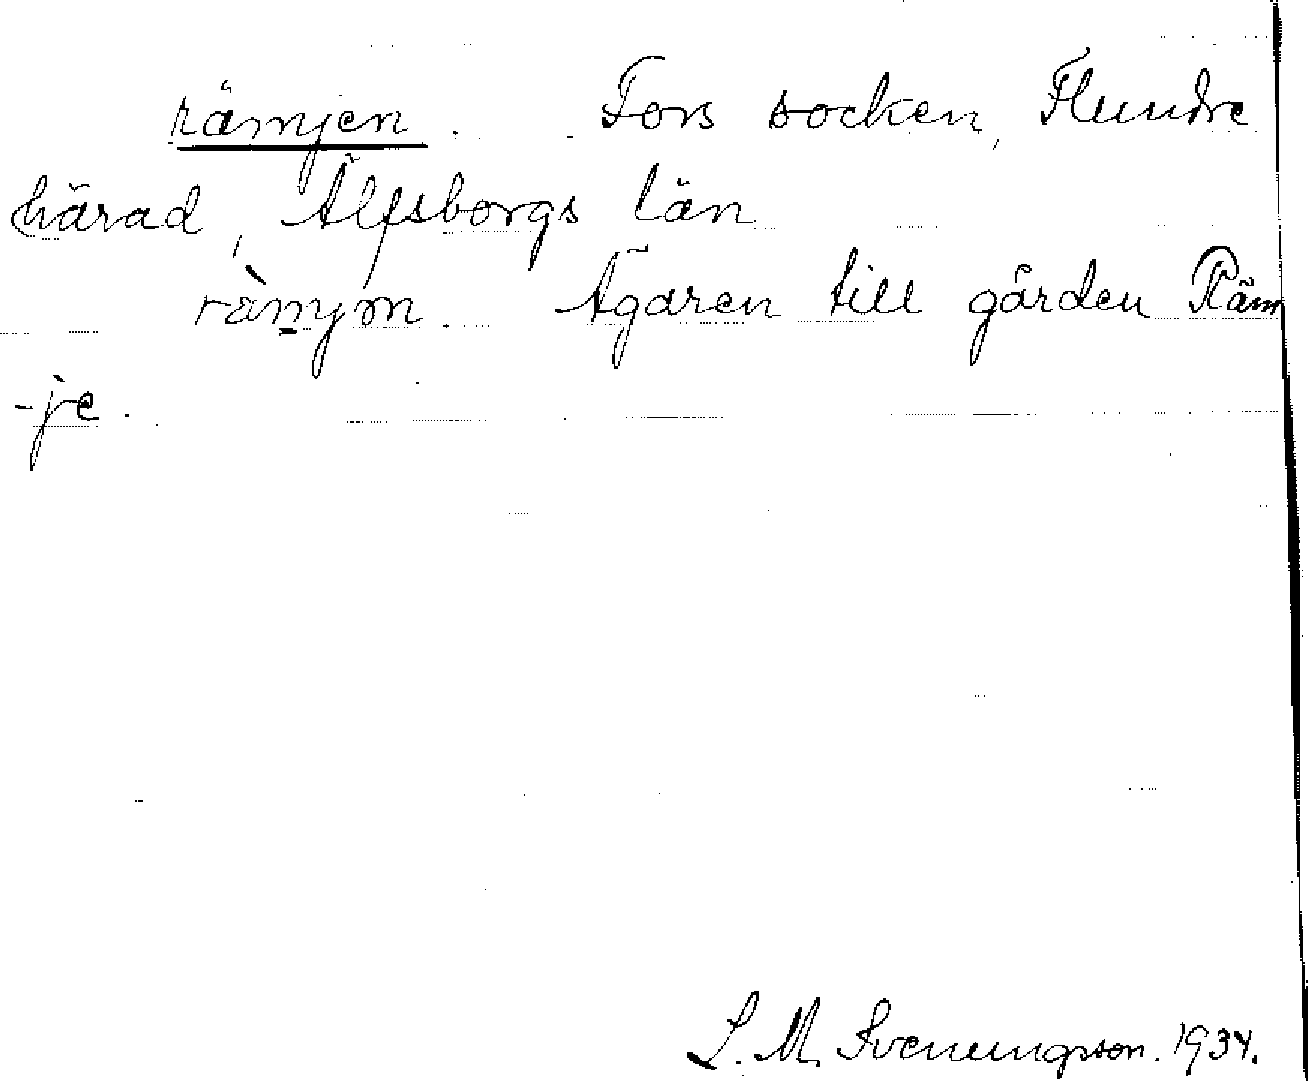 rämjen. Fors socken, Flundre
härad, Älfsborgs län
rämjm. Ägaren till gården Räm
-je.
L. M. Svenungsson. 1934.